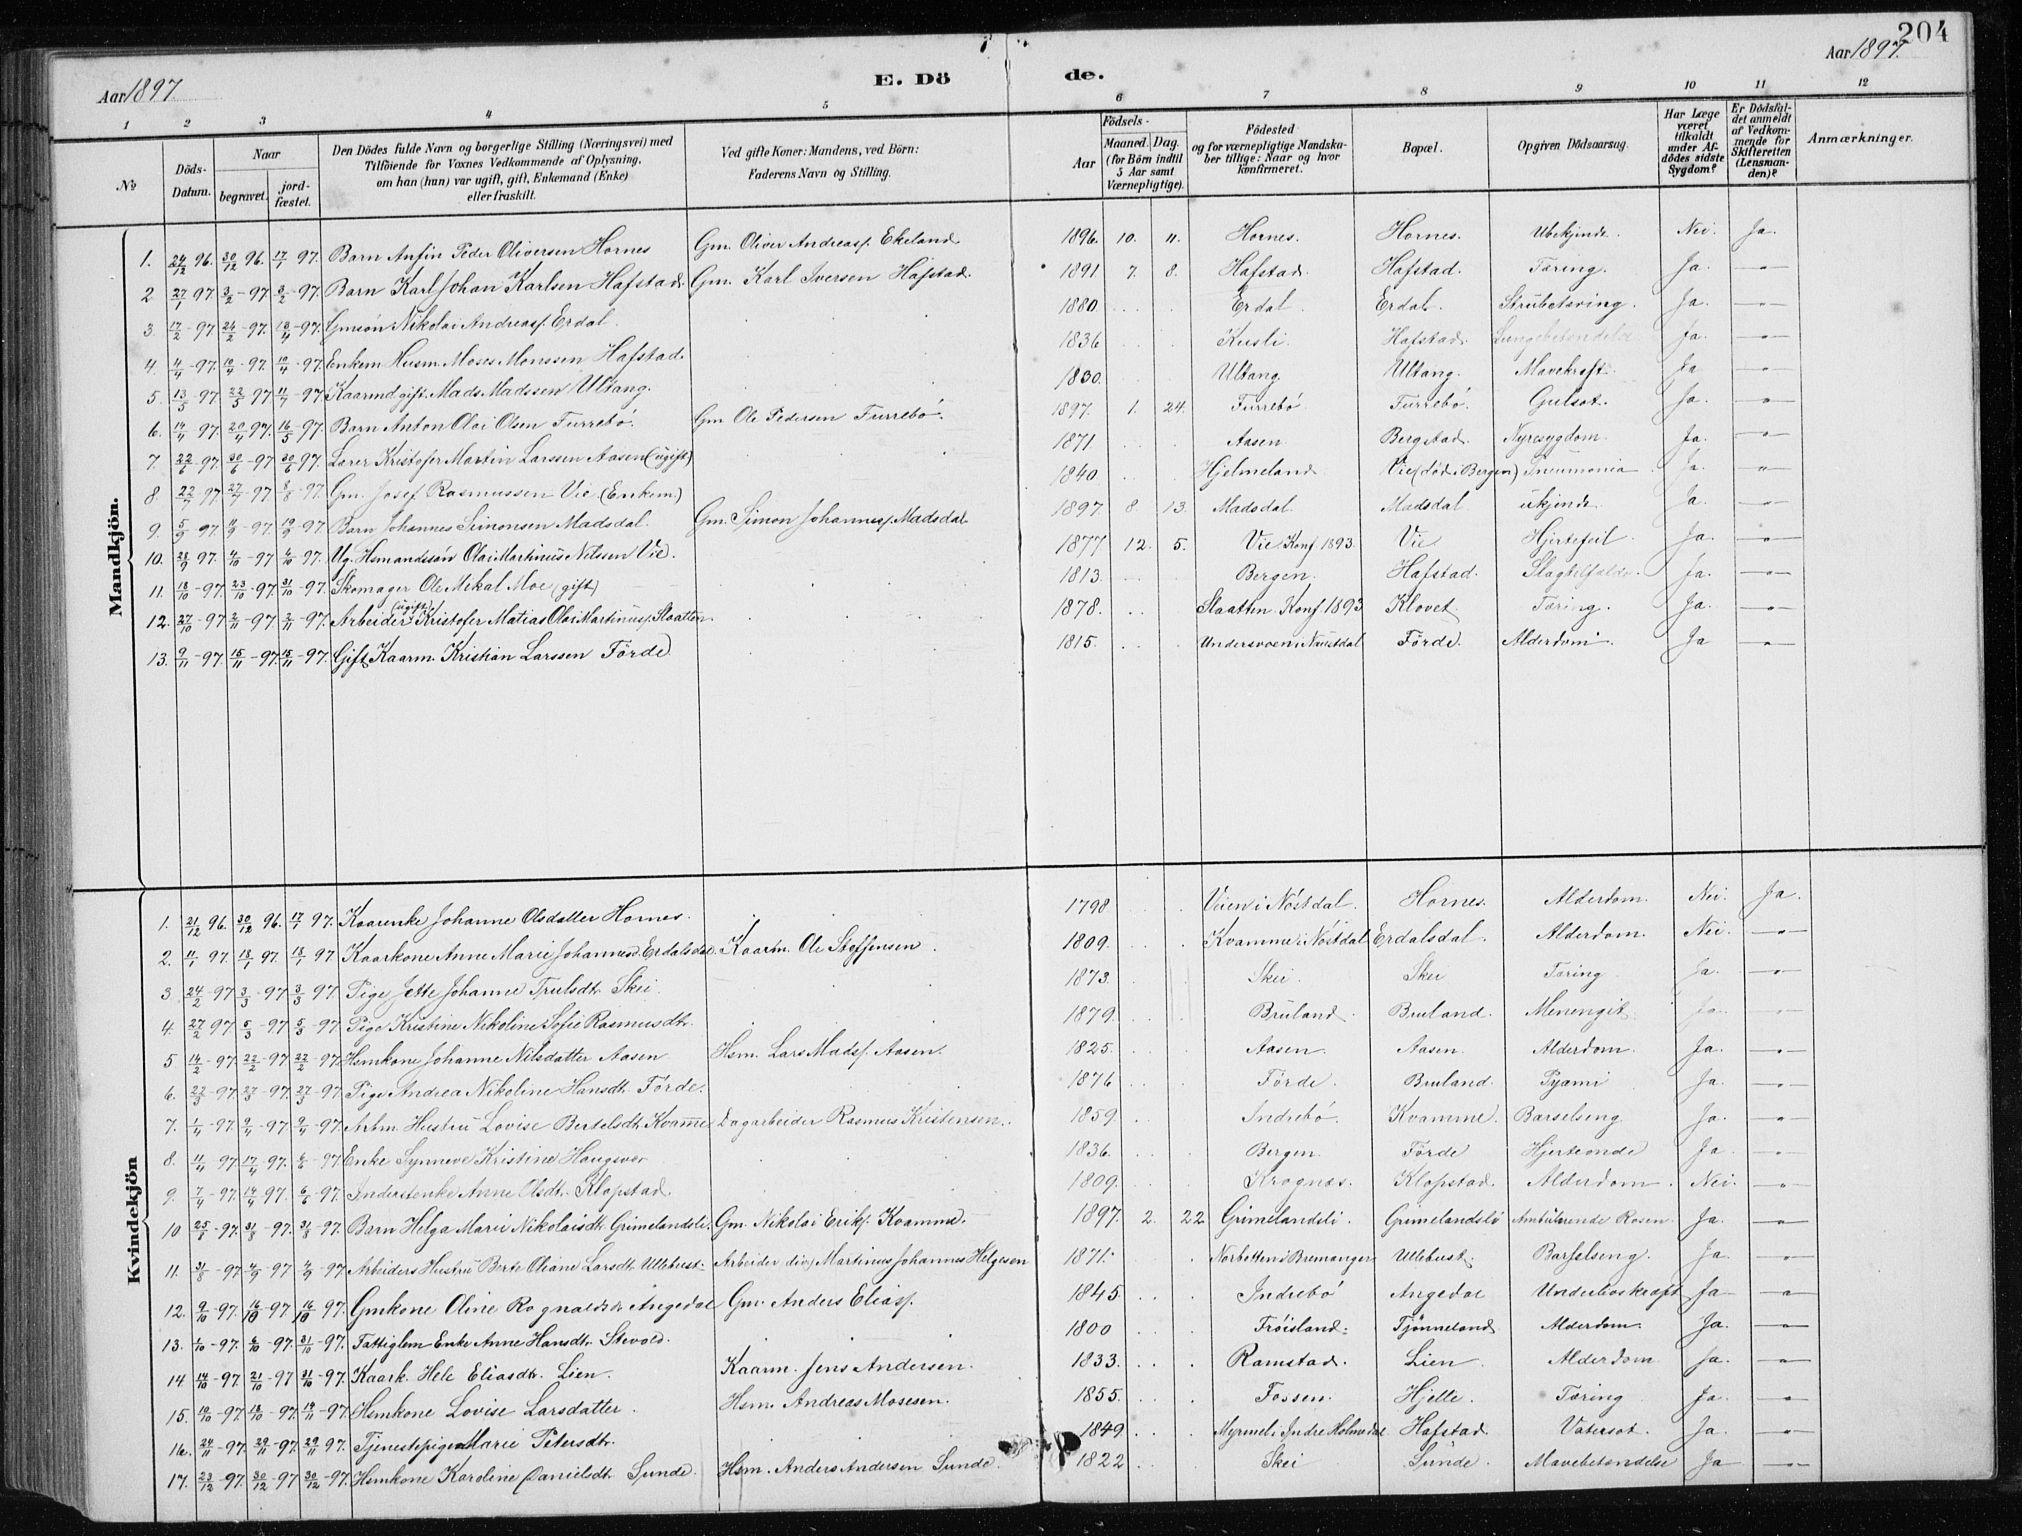 204
Aar 1897.
E. Dö de.
Aar 1897.
1 2 3 4 5 6 7 8 9 10 11 12
No
Döds-Datum.
Naar
begravet. jord-fæstet.
Den Dödes fulde Navn og borgerlige Stilling (Næringsvei) med
Tilföiende for Voxnes Vedkommende af Oplysning,
om han (hun) var ugift, gift, Enkemand (Enke)
eller fraskilt.
Ved gifte Koner: Mandens, ved Börn:
Faderens Navn og Stilling.
Födsels-
Aar Maaned. Dag.
(for Börn indtil 5 Aar samt Værnepligtige).
Födested
og for værnepligtige Mandska-
ber tillige: Naar og hvor
konfirmeret.
Bopæl.
Opgiven Dödsaarsag.
Har Læge været tilkaldt under Af-dödes sidste Sygdom?
Er Dödsfal-det anmeldt af Vedkom-mende for Skifteretten (Lensman-den)?
Anmærkninger.
Mandkjön.
1. 24/12 96. 30/12 96. 17/1 97. Barn Anfin Peder Oliversen Hornes Gm. Oliver Andreasf. Ekeland 1896. 10. 11. Hornes. Hornes. Ubekjendt. Nei. Ja.
2 27/1 97 3/2 - 97 3/2 - 97. Barn Karl Johan Karlsen Hafstad. Gm. Karl Iversen Hafstad. 1891 7. 8. Hafstad. Hafstad. Tæring. Ja. -"-
3. 17/2 - 97 24/2 - 97. 18/4 - 97. Gmsön Nikolai Andreasf. Erdal. 1880. Erdal. Erdal. Strubetæring. Ja. -"-
4. 4/4 - 97 10/4 - 97. 10/4 - 97. Enkem Husm. Moses Monssen Hafstad. 1836 Kusli. Hafstad. Lungebetændelse Ja. -"-
5. 13/5 97. 22/5 97 11/7 - 97 Kaarmd gift. Mads Madssen Ultang. 1830. Ultang. Ultang. Mavekræft. Ja -"-
6. 14/4 97. 20/4 97. 16/5 97. Barn Anton Olai Olsen Furrebö. Gm Ole Pedersen Furrebö. 1897. 1. 24. Furrebö Furrebö. Gulsot. Ja. -"-
7. 22/6 - 97. 30/6 - 97 30/6 97. Lærer Kristofer Martin Larssen Aasen (ugift) 1871 Aasen Bergstad. Nyresygdom. Ja. -"-
8. 22/7 97. 27/7 - 97 8/8 - 97. Gm. Josef Rasmussen Vie (Enkem.) 1840. Hjelmeland Vie (död i Bergen) Pneumonia Ja. "
9. 5/9 97. 11/9 - 97 19/9 - 97 Barn Johannes Simonsen Madsdal. Gm. Simon Johannesf. Madsdal 1897 8. 13. Madsdal Madsdal ukjendt Ja. -"-
10. 28/9 97. 4/10 - 97 4/10 - 97. Ug. Hsmandssön Olai Martinus Nilsen Vie. 1877 12. 5. Vie Konf 1893. Vie Hjertefeil. Ja. -"-
11. 18/10 - 97. 23/10 - 97. 31/10 - 97. Skomager Ole Mikal Moe (gift) 1813. Bergen. Hafstad. Slagtilfælde. Ja. -"-
12. 27/10 - 97 2/11 - 97 2/11 - 97. Arbeider (ugift) Kristofer Matias Olai Martinusf. Slaatten 1878. Slaatten Konf. 1893 Klovet. Tæring. Ja. -"-
13. 9/11 - 97. 15/11 - 97. 15/11 - 97. Gift Kaarm. Kristian Larssen Förde 1815. i Naustdal Förde. Alderdom. Ja -"-
Kvindekjön
1. 21/12 96. 30/12 96. 17/1 97. Kaarenke Johanne Olsdatter Hornes. 1798 Veien i Nöstdal Hornes. Alderdom. Nei. Ja.
2. 11/1 97. 18/1 97. 18/1 97 Kaarkone Anne Marie Johannesd. Erdalsdal Kaarm. Ole Steffensen. 1809. Kvamme i Nöstdal Erdalsdal. Alderdom. Nei. -"-
3 24/2 - 97 3/3 - 97 3/3 97. Pige Jette Johanne Trulsdtr. Skei. 1873. Skei. Skei Tæring Ja. -"-
4. 27/2 97 5/3 - 97 5/3 - 97. Pige Kristine Nikoline Sofie Rasmusdtr. 1879. Bruland. Bruland. Menengit. Ja. -"-
5 14/2 - 97. 22/2 - 97 22/2 - 97 Hsmkone Johanne Nilsdatter Aasen Hsm. Lars Madsf. Aasen. 1825. Aasen. Aasen. Alderdom. Ja. -"-
6. 22/3 - 97. 27/3 - 97. 27/3 - 97. Pige Andrea Nikoline Hansdtr Förde. 1876 Förde. Bruland. Pyæmi Ja. -"-
7. 1/4 - 97. 9/4 - 97. 9/4 - 97. Arbm. Hustru Lovise Bertelsdtr. Kvamme Dagarbeider Rasmus Kristensen. 1859. Indrebö Kvamme. Barselseng Ja. -"-
8. 11/4 97. 17/4 97. - 97. Enke Synneve Kristine Haugsvær 1836. Bergen Förde Hjerteonde Ja. -"-
9. 7/4 - 97. 14/4 97. 6/6 - 97. Inderstenke Anne Olsdtr. Klopstad. 1809. Krognæs. Klopstad. Alderdom. Nei. -"-
10 25/7 - 97. 31/8 - 97. 31/8 - 97. Barn Helga Marie Nikolaisdtr. Grimelandsli. Gm. Nikolai Eriksf. Kvamme. 1897. 2. 22 Grimelandsli. Grimelandsli Ambulerende Rosen. Ja. -"-
11. 31/8 - 97 4/9 - 97 4/9 - 97. Arbeiders Hustru Berte Oliane Larsdtr. Ullebust. Arbeider div. Martinus Johannes Helgesen 1871. Norbotten i Bremanger Ullebust. Barselseng. Ja. -"-
12. 9/10 - 97. 16/10 - 97 16/10 - 97. Gmkone Oline Rognaldsdtr Angedal Gm. Anders Eliasf. 1845. Indrebö Angedal Underlivskræft Ja -"-
13. 1/10 - 97. 6/10 - 97. 31/10 - 97. Fattiglem Enke Anne Hansdtr. Stevold. 1800 Fröisland. Tjönneland Alderdom. Ja. -"-
14 14/10 - 97 21/10 - 97 31/10 - 97. Kaark. Hele Eliasdtr. Lien. Kaarm. Jens Andersen. 1833. Ramstad. Lien. Alderdom Ja. -"-
15. 10/10 - 97. 18/10 - 97. 19/11 - 97. Hsmkone Lovise Larsdatter. Hsm. Andreas Mosesen. 1855. Fossen. Hjelle. Tæring Ja. -"-
16. 24/11 - 97. 29/11 - 97. 29/11 97. Tjenestepige Marie Petersdtr. 1849 Myrmel i Indre Holmedal Hafstad. Vatersot. Ja. -"-
17. 23/12 - 97. 30/12 - 97 30/12 - 97. Hsmkone Karoline Danielsdtr. Sunde. Hsm. Anders Andersen Sunde. 1822 Skei Sunde. Mavebetændelse Ja -"-